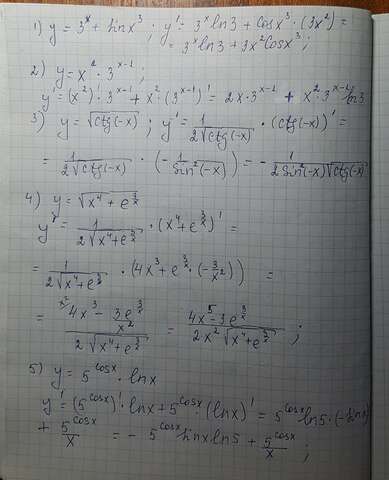 1) y = 3^x + sin x^3 ; y' = 3^x ln3 + cos x^3 · (3x^2) =
= 3^x ln3 + 3x^2 cos x^3 ;
2) y = x^2 · 3^(x-1) ;
y' = (x^2)' · 3^(x-1) + x^2 · (3^(x-1))' = 2x · 3^(x-1) + x^2 · 3^(x-1) ln3
3) y = √(ctg(-x)) ; y' = 1/(2√(ctg(-x))) · (ctg(-x))' =
= 1/(2√(ctg(-x))) · (-1/(sin^2(-x))) = -1/(2sin^2(-x)√(ctg(-x)))
4) y = √(x^4 + e^(3/x))
y' = 1/(2√(x^4 + e^(3/x))) · (x^4 + e^(3/x))' =
= 1/(2√(x^4 + e^(3/x))) · (4x^3 + e^(3/x) · (-3/x^2)) =
= (x^2) (4x^3 - 3e^(3/x)/x^2)/(2√(x^4 + e^(3/x))) = (4x^5 - 3e^(3/x))/(2x^2 √(x^4 + e^(3/x))) ;
5) y = 5^(cos x) · ln x
y' = (5^(cos x))' · ln x + 5^(cos x) · (ln x)' = 5^(cos x) ln5 · (-sin x)
+ 5^(cos x)/x = - 5^(cos x) sin x ln5 + 5^(cos x)/x ;